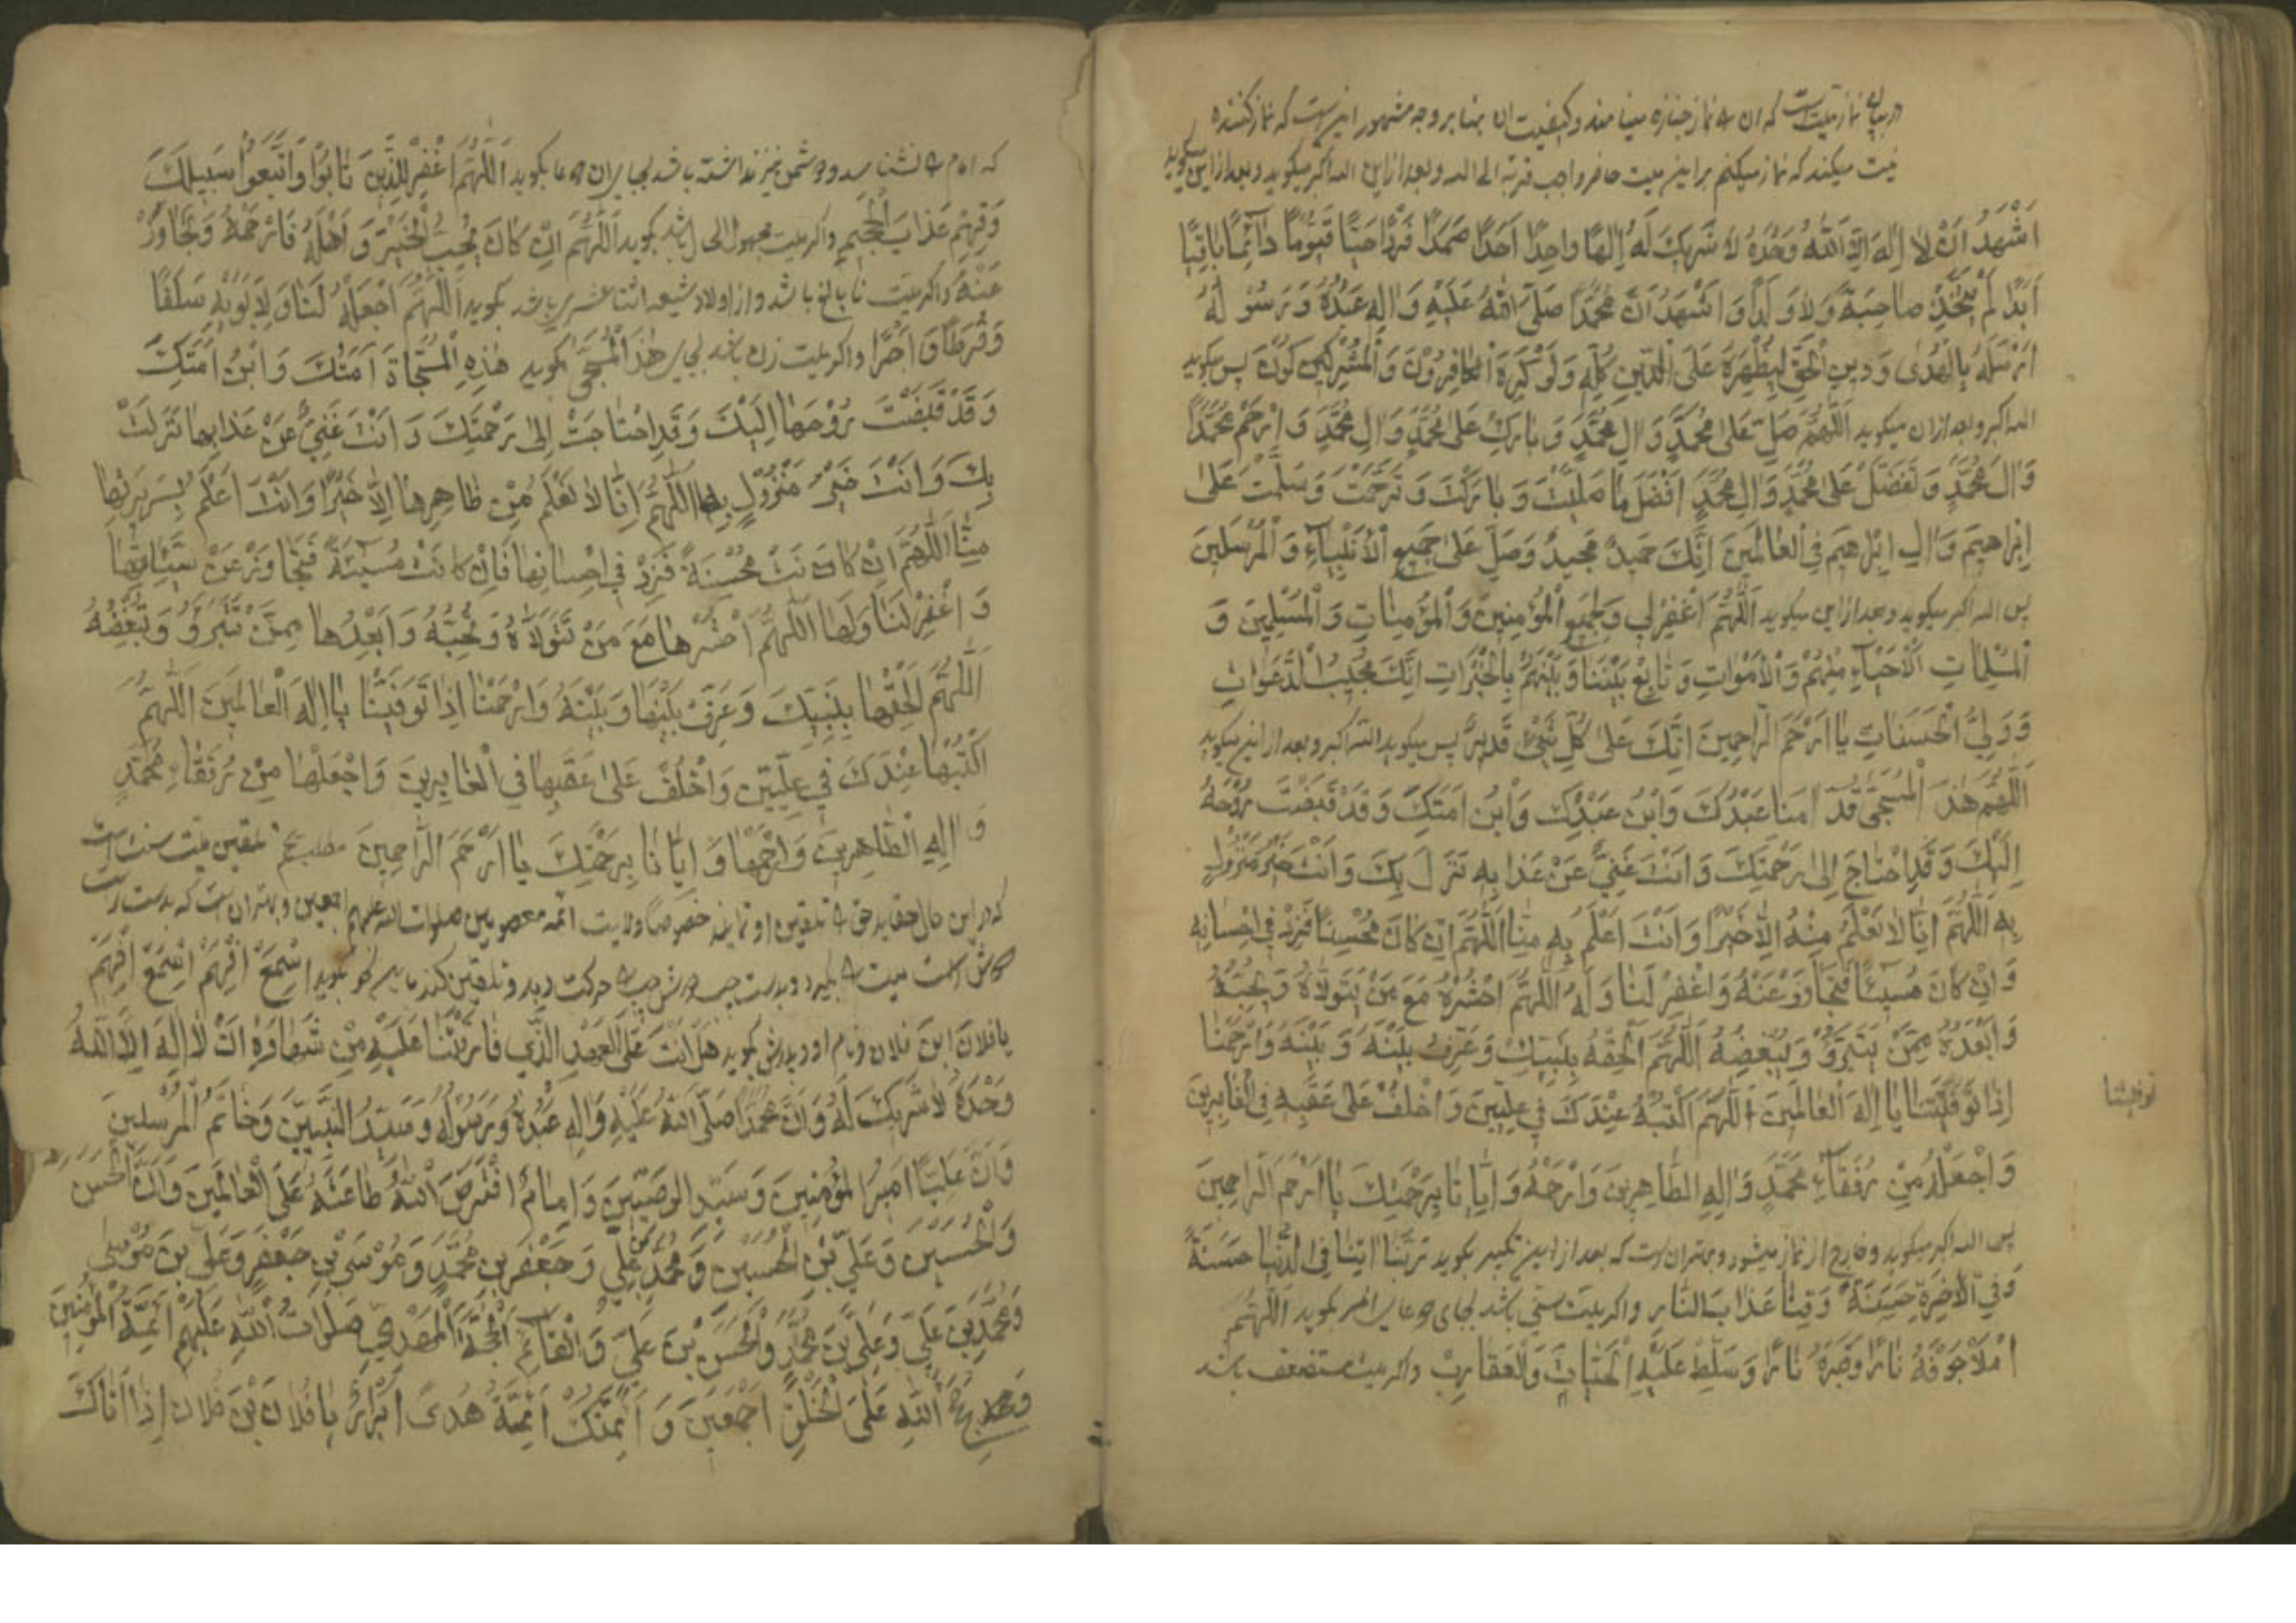 در بیان نماز میت است که آن را نماز جنازه مینامند و کیفیت آن بنا بر وجه مشهور اینست که نماز کننده
نیت میکند که نماز میکنم بر این میت حاضر واجب قربة الی الله و بعد از این الله اکبر میکوید و بعد از این میکوید
اَشْهَدُ اَنْ لا اِلهَ اِلَّا اللهُ وَحْدَهُ لا شَریكَ لَهُ اِلهًا واحِدًا اَحَدًا صَمَدًا فَرْدًا حَیًّا قَیُّومًا دآئِمًا باقِیًا
اَبَدًا لَمْ یَتَّخِذْ صاحِبَةً وَلا وَلَدًا وَاَشْهَدُ اَنَّ مُحَمَّدًا صَلَّی اللهُ عَلَیْهِ وَالِهِ عَبْدُهُ وَرَسُولُهُ
اَرْسَلَهُ بِالْهُدی وَدینِ الْحَقِّ لِیُظْهِرَهُ عَلَی الدّینِ کُلِّهِ وَلَوْ کَرِهَ الْکافِرُونَ وَالْمُشْرِکینَ پس میکوید
الله اکبر و بعد از ان میکوید اَللّهُمَّ صَلِّ عَلی مُحَمَّدٍ وَالِ مُحَمَّدٍ وَبارِكْ عَلی مُحَمَّدٍ وَالِ مُحَمَّدٍ وَارْحَمْ مُحَمَّدًا
وَالَ مُحَمَّدٍ وَتَفَضَّلْ عَلی مُحَمَّدٍ وَالِ مُحَمَّدٍ اَفْضَلَ ما صَلَّیْتَ وَبارَکْتَ وَتَرَحَّمْتَ وَسَلَّمْتَ عَلی
اِبْراهیمَ وَالِ اِبْراهیمَ فِی الْعالَمینَ اِنَّكَ حَمیدٌ مَجیدٌ وَصَلِّ عَلی جَمیعِ الْاَنْبِیآءِ وَالْمُرْسَلینَ
پس الله اکبر میکوید و بعد از این میکوید اَللّهُمَّ اغْفِرْلی وَلِجَمیعِ الْمُؤْمِنینَ وَالْمُؤْمِناتِ وَالْمُسْلِمینَ وَ
الْمُسْلِماتِ اَلْاَحْیآءِ مِنْهُمْ وَالْاَمْواتِ وَتابِعْ بَیْنَنا وَبَیْنَهُمْ بِالْخَیْراتِ اِنَّكَ مُجیبُ الدَّعَواتِ
وَوَلِیُّ الْحَسَناتِ یا اَرْحَمَ الرّاحِمینَ اِنَّكَ عَلی کُلِّ شَیْءٍ قَدیرٌ پس میکوید الله اکبر و بعد از این میکوید
اَللّهُمَّ هذَا الْمُسَجّی قُدّامَنا عَبْدُكَ وَابْنُ عَبْدِكَ وَابْنُ اَمَتِكَ وَقَدْ قَبَضْتَ رُوحَهُ
اِلَیْكَ وَقَدِ احْتاجَ اِلی رَحْمَتِكَ وَاَنْتَ غَنِیٌّ عَنْ عَذابِهِ نَزَلَ بِكَ وَاَنْتَ خَیْرُ مَنْزُولٍ
بِهِ اَللّهُمَّ اِنّا لا نَعْلَمُ مِنْهُ اِلّا خَیْرًا وَاَنْتَ اَعْلَمُ بِهِ مِنّا اَللّهُمَّ اِنْ کانَ مُحْسِنًا فَزِدْ فی اِحْسانِهِ
وَاِنْ کانَ مُسیئًا فَتَجاوَزْ عَنْهُ وَاغْفِرْ لَنا وَلَهُ اَللّهُمَّ احْشُرْهُ مَعَ مَنْ یَتَوَلّاهُ وَیُحِبُّهُ
وَاَبْعِدْهُ مِمَّنْ یَتَبَرَّؤُ وَیُبْغِضُهُ اَللّهُمَّ اَلْحِقْهُ بِنَبِیِّكَ وَعَرِّفْ بَیْنَهُ وَبَیْنَهُ وَارْحَمْنا
اِذا تَوَفَّیْتَنا یا اِلهَ الْعالَمینَ اَللّهُمَّ اکْتُبْهُ عِنْدَكَ فی عِلِّیّینَ وَاخْلُفْ عَلی عَقِبِهِ فِی الْغابِرینَ
توفیتنا
وَاجْعَلْهُ مِنْ رُفَقآءِ مُحَمَّدٍ وَالِهِ الطّاهِرینَ وَارْحَمْهُ وَاِیّانا بِرَحْمَتِكَ یا اَرْحَمَ الرّاحِمینَ
پس الله اکبر میکوید و فارغ از نماز میشود و بهتر آن است که بعد از این تکبیر بکوید رَبَّنا اتِنا فِی الدُّنْیا حَسَنَةً
وَفِی الْاخِرَةِ حَسَنَةً وَقِنا عَذابَ النّارِ و اکر میت سنی باشد بجای دعای اخر بکوید اَللّهُمَّ
امْلَأْ جَوْفَهُ نارًا وَقَبْرَهُ نارًا وَسَلِّطْ عَلَیْهِ الْحَیّاتِ وَالْعَقارِبَ و اکر میت مستضعف باشد
که امام را نشناسد و دشمن نیز نداشته باشد بجای ان دعا بکوید اَللّهُمَّ اغْفِرْ لِلَّذینَ تابُوا وَاتَّبَعُوا سَبیلَكَ
وَقِهِمْ عَذابَ الْجَحیمِ و اکر میت مجهول الحال باشد بکوید اَللّهُمَّ اِنْ کانَ یُحِبُّ الْخَیْرَ وَاَهْلَهُ فَارْحَمْهُ وَتَجاوَزْ
عَنْهُ و اکر میت نابالغ باشد و از اولاد شیعه اثنا عشری باشد بکوید اَللّهُمَّ اجْعَلْهُ لَنا وَلِاَبَوَیْهِ سَلَفًا
وَفَرَطًا وَاَجْرًا و اکر میت زن باشد بجای هذَا الْمُسَجّی بکوید هذِهِ الْمُسَجّاةَ اَمَتُكَ وَابْنَةُ اَمَتِكَ
وَقَدْ قَبَضْتَ رُوحَها اِلَیْكَ وَقَدِ احْتاجَتْ اِلی رَحْمَتِكَ وَاَنْتَ غَنِیٌّ عَنْ عَذابِها نَزَلَتْ
بِكَ وَاَنْتَ خَیْرُ مَنْزُولٍ بِها اَللّهُمَّ اِنّا لا نَعْلَمُ مِنْ ظاهِرِها اِلّا خَیْرًا وَاَنْتَ اَعْلَمُ بِسَریرَتِها
مِنّا اَللّهُمَّ اِنْ کانَتْ مُحْسِنَةً فَزِدْ فی اِحْسانِها فَاِنْ کانَتْ مُسیئَةً فَتَجاوَزْ عَنْ سَیِّئاتِها
وَاغْفِرْ لَنا وَلَها اَللّهُمَّ احْشُرْها مَعَ مَنْ تَتَوَلّاهُ وَتُحِبُّهُ وَاَبْعِدْها مِمَّنْ تَتَبَرَّؤُ وَتُبْغِضُهُ
اَللّهُمَّ اَلْحِقْها بِنَبِیِّكَ وَعَرِّفْ بَیْنَها وَبَیْنَهُ وَارْحَمْنا اِذا تَوَفَّیْتَنا یا اِلهَ الْعالَمینَ اَللّهُمَّ
اکْتُبْها عِنْدَكَ فی عِلِّیّینَ وَاخْلُفْ عَلی عَقِبِها فِی الْغابِرینَ وَاجْعَلْها مِنْ رُفَقآءِ مُحَمَّدٍ
وَالِهِ الطّاهِرینَ وَارْحَمْها وَاِیّانا بِرَحْمَتِكَ یا اَرْحَمَ الرّاحِمینَ مطلب تلقین میت سنت است
که در این حال عقاید حق را تلقین او نمایند خصوصا ولایت ائمه معصومین صلوات الله علیهم اجمعین و بهتر ان است که بدست راست
دوش راست میت را بگیرد و بدست چپ دوش چپ را حرکت دهد و تلقین کند بکوید اِسْمَعْ اِفْهَمْ اِسْمَعْ اِفْهَمْ
یا فلانَ ابنَ فلان و نام او و پدرش بکوید هَلْ اَنْتَ عَلَی الْعَهْدِ الَّذی فارَقْتَنا عَلَیْهِ مِنْ شَهادَةِ اَنْ لا اِلهَ اِلَّا اللهُ
وَحْدَهُ لا شَریكَ لَهُ وَاَنَّ مُحَمَّدًا صَلَّی اللهُ عَلَیْهِ وَالِهِ عَبْدُهُ وَرَسُولُهُ وَسَیِّدُ النَّبِیّینَ وَخاتَمُ الْمُرْسَلینَ
وَاَنَّ عَلِیًّا اَمیرُ الْمُؤْمِنینَ وَسَیِّدُ الْوَصِیّینَ وَاِمامٌ افْتَرَضَ اللهُ طاعَتَهُ عَلَی الْعالَمینَ وَاَنَّ الْحَسَنَ
وَالْحُسَیْنَ وَعَلِیَّ بْنَ الْحُسَیْنِ وَمُحَمَّدَ بْنَ عَلِیٍّ وَجَعْفَرَ بْنَ مُحَمَّدٍ وَمُوسَی بْنَ جَعْفَرٍ وَعَلِیَّ بْنَ مُوسی
وَمُحَمَّدَ بْنَ عَلِیٍّ وَعَلِیَّ بْنَ مُحَمَّدٍ وَالْحَسَنَ بْنَ عَلِیٍّ وَالْقآئِمَ الْحُجَّةَ الْمَهْدِیَّ صَلَواتُ اللهِ عَلَیْهِمْ اَئِمَّةُ الْمُؤْمِنینَ
وَحُجَجُ اللهِ عَلَی الْخَلْقِ اَجْمَعینَ وَاَئِمَّتُكَ اَئِمَّةُ هُدًی اَبْرارٌ یا فُلانَ بْنَ فُلان اِذا اَتاكَ